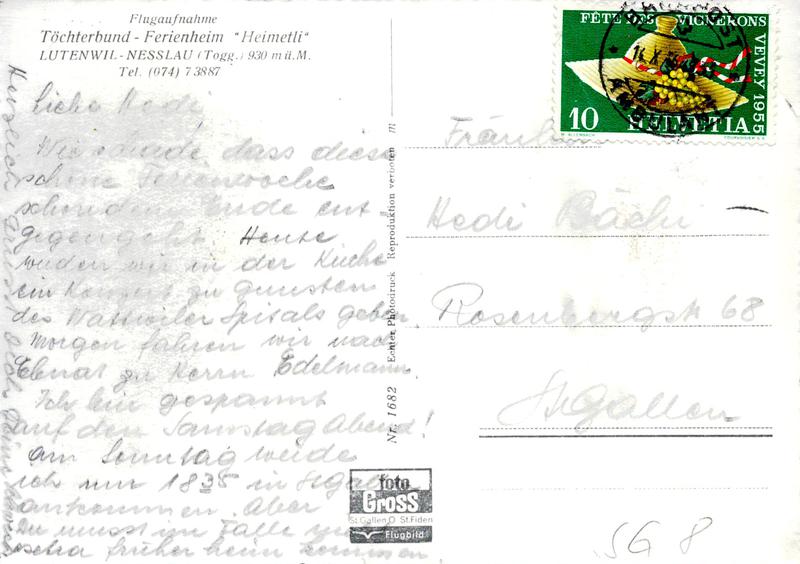 Flugaufnahme
Töchterbund - Ferienheim "Heimetli"
LUTENWIL-NESSLAU (Togg.) 930 m ü. M.
Tel. (074) 7 38 87
FÊTE DES VIGNERONS
VEVEY 1955
10 HELVETIA
AMBULANT
Liebe Hedi
dass diese
schöne Ferienwoche
schon dem Ende ent-
gegengeht. Heute
werden wir in der Kirche
ein Konzert zu gunsten
des Wattwiler Spitals geben
Morgen fahren wir nach
Ebnat zu Herrn Edelmann
Ich bin gespannt
auf den Samstag Abend!
am Sonntag werde
ich um 1835 in St.Gallen
ankommen. Aber
Du musst im Falle
früher heim kommen
Fräulein
Hedi Bächi
Rosenbergstr 68
St Gallen
Nr. 1682 Echter Photodruck Reproduktion verboten m
foto
Gross
St.Gallen O St.Fiden
Flugbild
SG 8